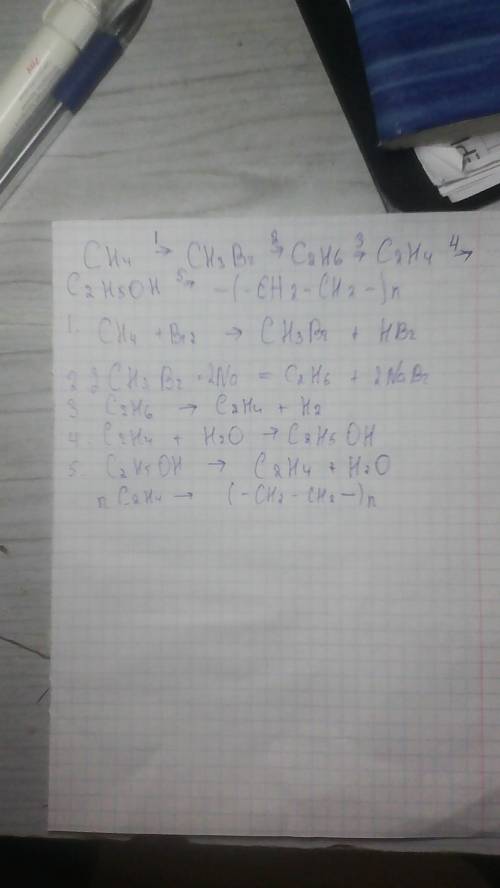 CH4 1→ CH3Br 2→ C2H6 3→ C2H4 4→
C2H5OH 5→ -(-CH2-CH2-)n
1. CH4 + Br2 → CH3Br + HBr
2 2CH3Br + 2Na = C2H6 + 2NaBr
3 C2H6 → C2H4 + H2
4. C2H4 + H2O → C2H5OH
5. C2H5OH → C2H4 + H2O
n C2H4 → (-CH2-CH2-)n